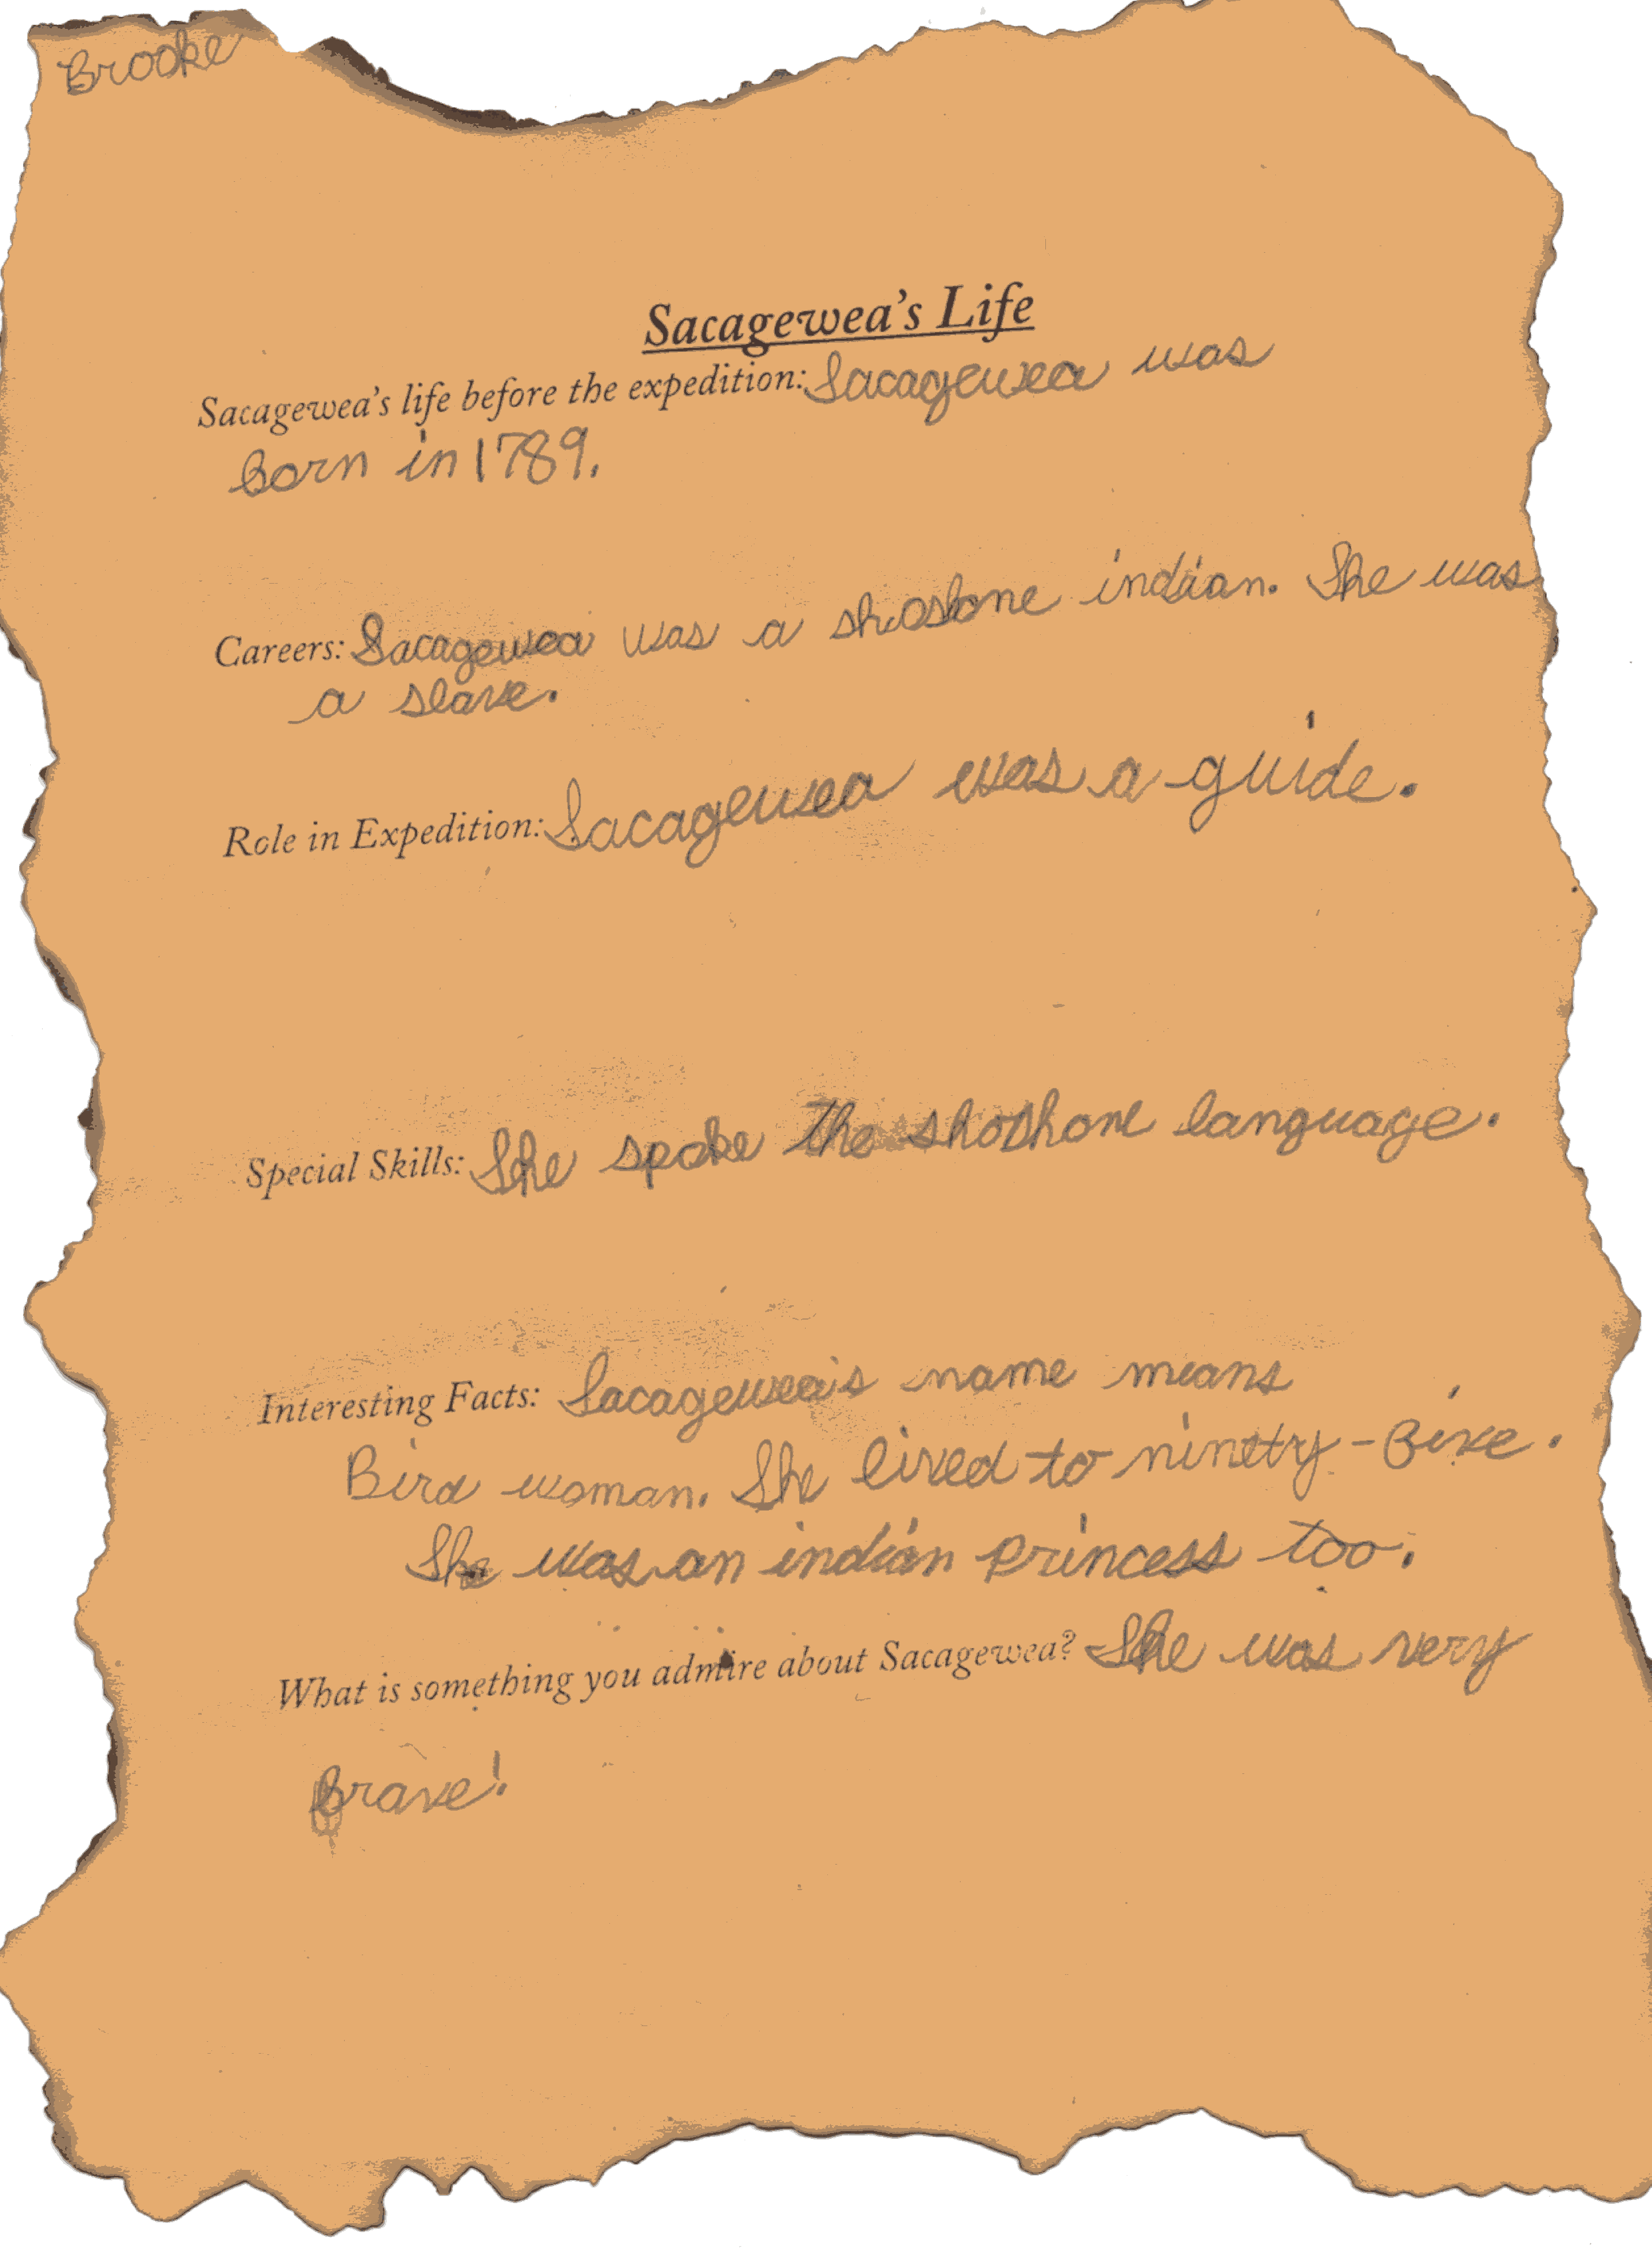 Brooke
Sacagewea's Life
Sacagewea's life before the expedition: Sacagewea was
Born in 1789.
Careers: Sacagewea was a shoshone indian. She was
a slave.
Role in Expedition: Sacagewea was a guide.
Special Skills: She spoke the shoshone language.
Interesting Facts: Sacagewea's name means
Bird woman. She lived to ninety-five.
She was an indian princess too.
What is something you admire about Sacagewea? She was very
brave!